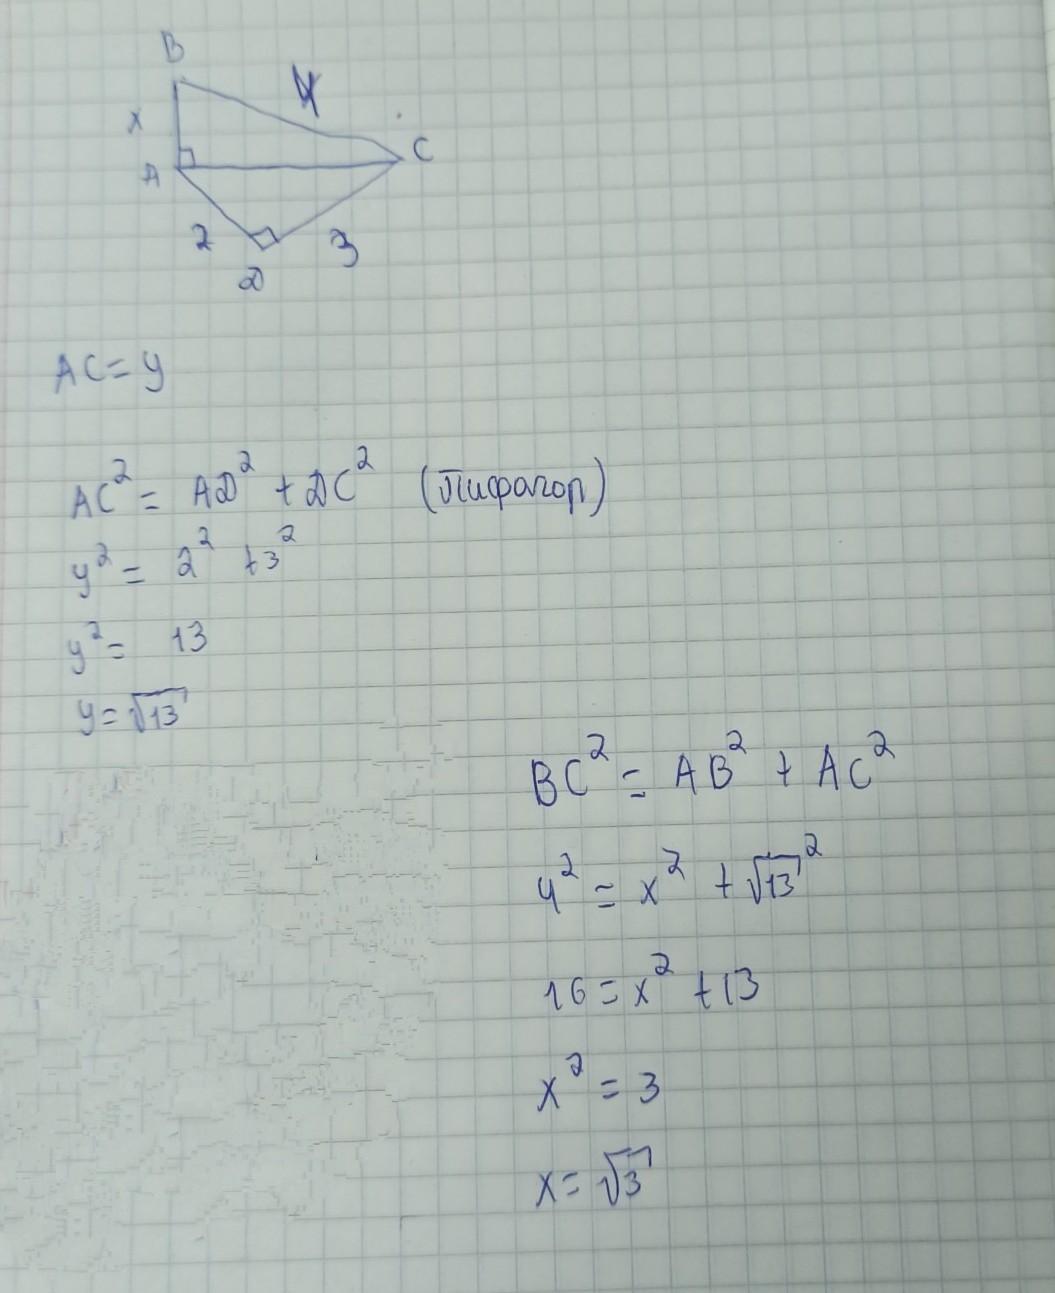 B
4
x
C
A
2
3
D
AC = y
AC² = AD² + DC² (Пифагор)
y² = 2² + 3²
y² = 13
y = √13
BC² = AB² + AC²
4² = x² + √13²
16 = x² + 13
x² = 3
x = √3